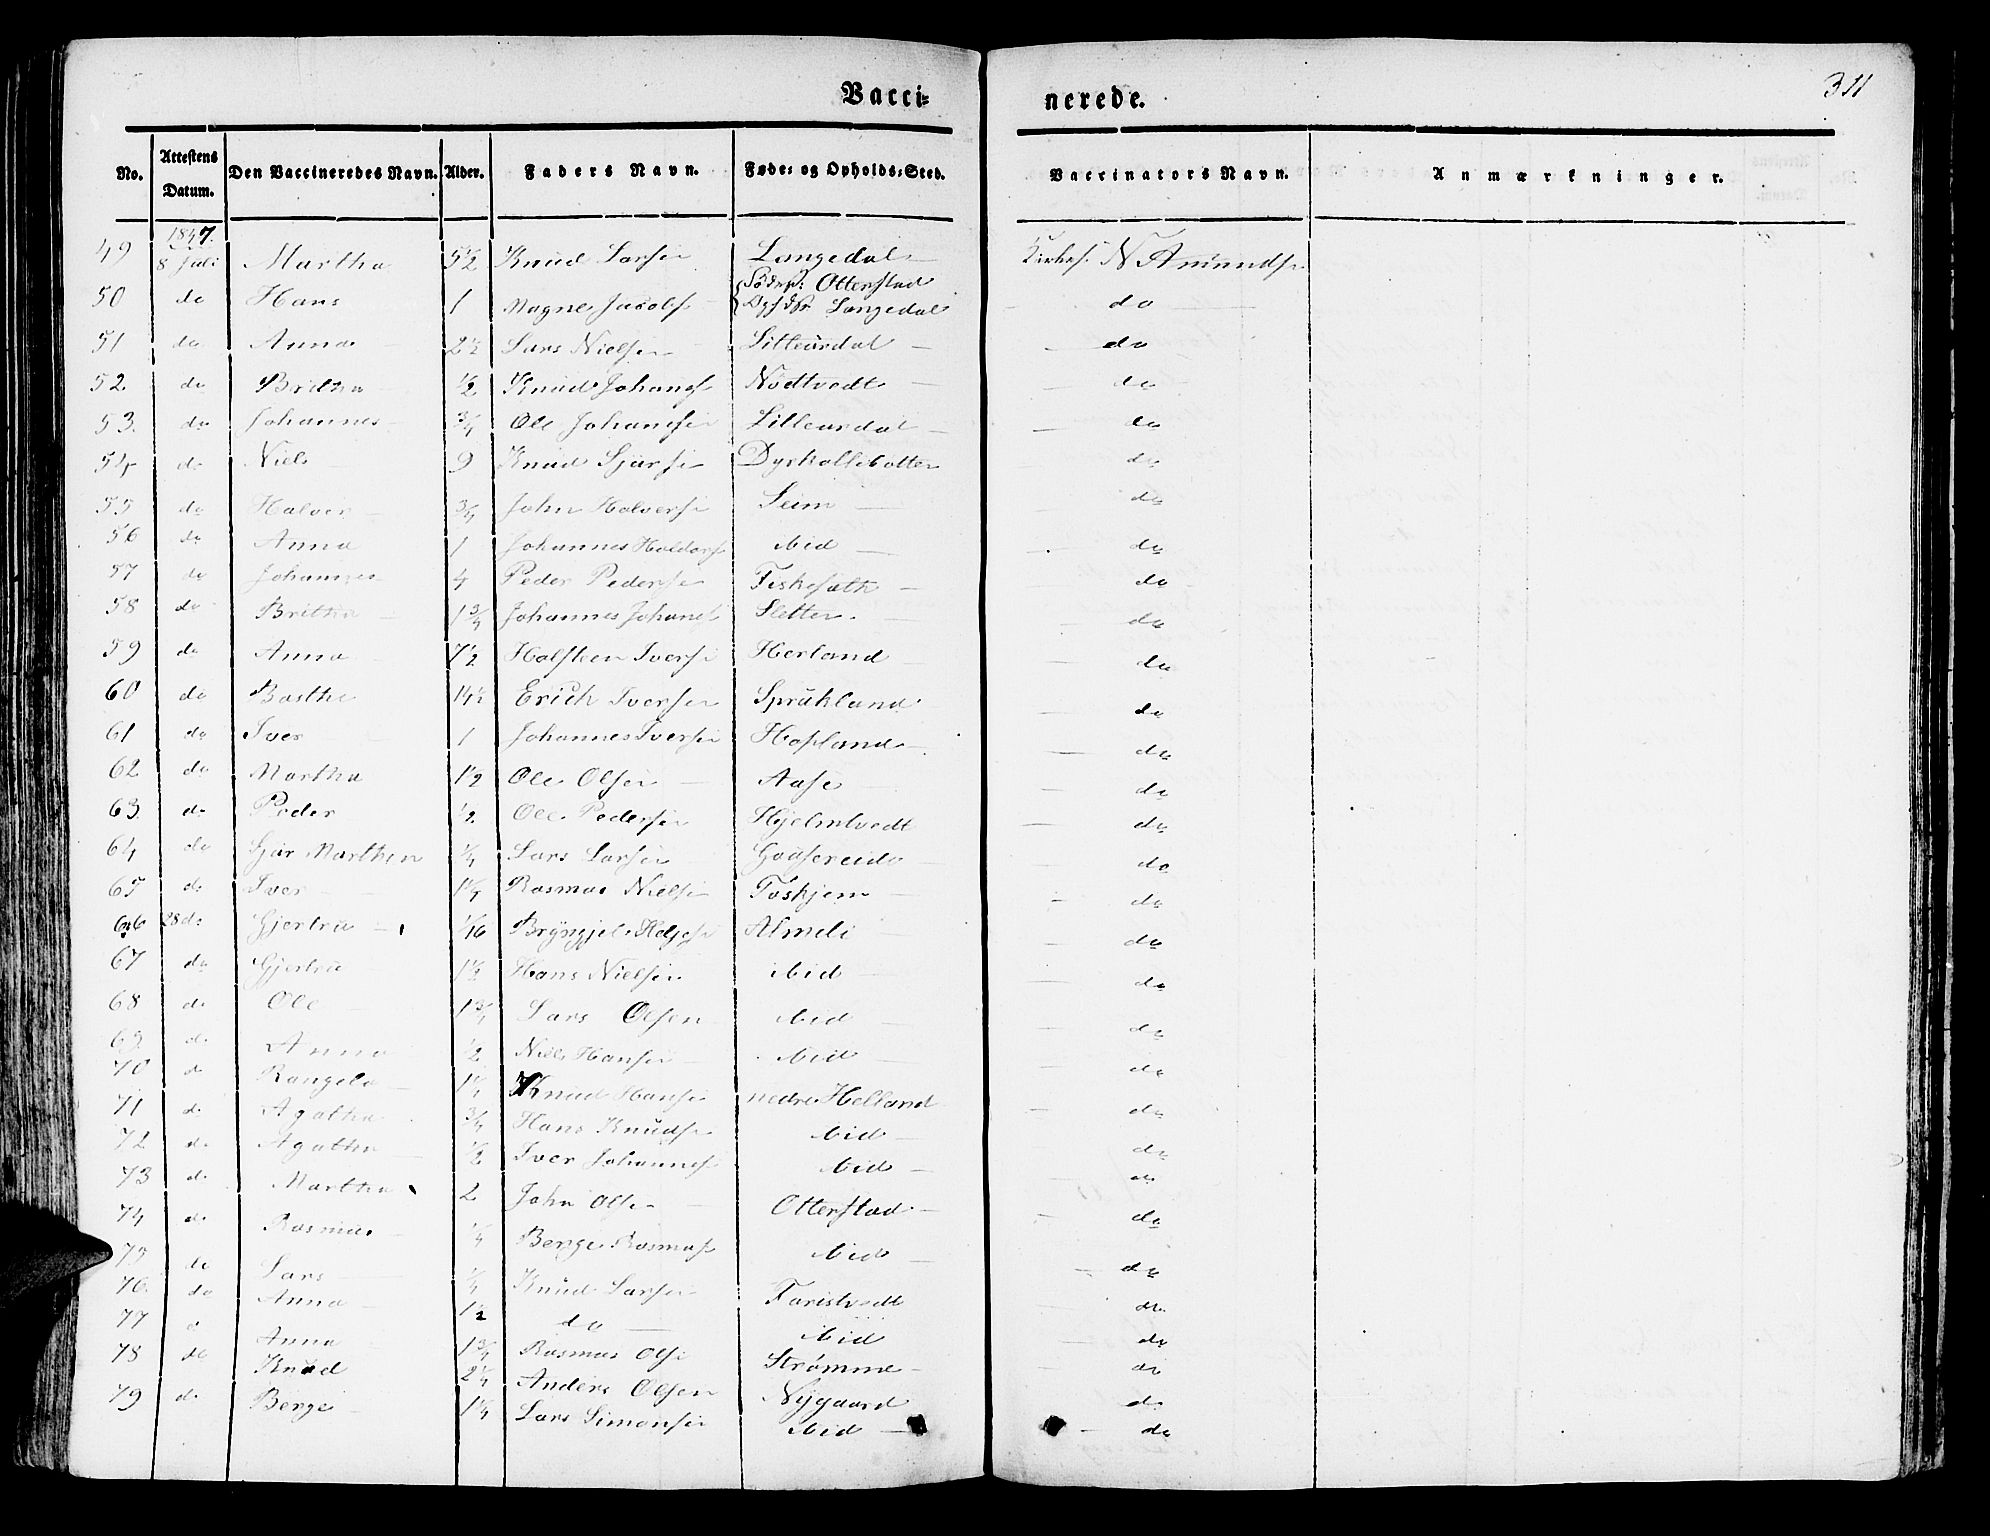 311
Vacci- nerede.
No. Attestens Datum. Den Vaccineredes Navn. Alder. Faders Navn. Føde- og Opholds-Sted. Vaccinators Navn. Anmærkninger.
1847.
49 8 Juli Martha 5½ Knud Larsen Langedal Kirkes. N Amundsen
50 do Hans 1 Magne Jacobs Födest: Otterstad Langedal do
51 do Anna 2½ Lars Nielsen Lilleurdal do
52. do Britha ½ Knud Johanes Nödtvedt do
53. do Johannes ¾ Ole Johanesen Lilleurdal do
54 do Niels 9 Knud Sjursen Dyrkollbotten do
55 do Halvor ¾ John Halvorsen Seim do
56 do Anna 1 Johannes Haldors ibid do
57 do Johannes 4 Peder Pedersen Fiskesæth do
58 do Britha 1¾ Johannes Johanes Sletten do
59 do Anna 7½ Holsteen Iversen Herland do
60 do Basthe 14½ Erich Iversen Sprukland do
61 do Iver 1 Johannes Iversen Hopland do
62 do Martha 1½ Ole Olsen Aase do
63. do Peder ½ Ole Pedersen Hjelmtvedt do
64 do Sjur Marthin ¼ Lars Larsen Gaasereide do
65 do Iver 1¼ Rasmus Nielsen Toskjem do
66 28 do Gjertru 1/16 Brÿngjel Helges Almeli do
67 do Gjertru 1½ Hans Nielsen ibid do
68 do Ole 1¾ Lars Olsen ibid do
69. do Anna ½ Niels Hansen ibid do
70 do Rangela 1¼ Knud Hansen nedre Helland do
71 do Agatha ¾ Hans Knudsen ibid do
72 do Agatha ½ Iver Johannes ibid do
73 do Martha 2 John Olsen Otterstad do
74 do Rasmus ¼ Berge Rasmus ibid do
75 do Lars ¼ Knud Larsen Faristvedt do
76. do Anna 1½ do ibid do
77 d Anna 1¾ Rasmus Ols Strømme do
78 do Knud 2¼ Anders Olsen Nÿgaard do
79 do Berge 1¼ Lars Simonsen ibid do